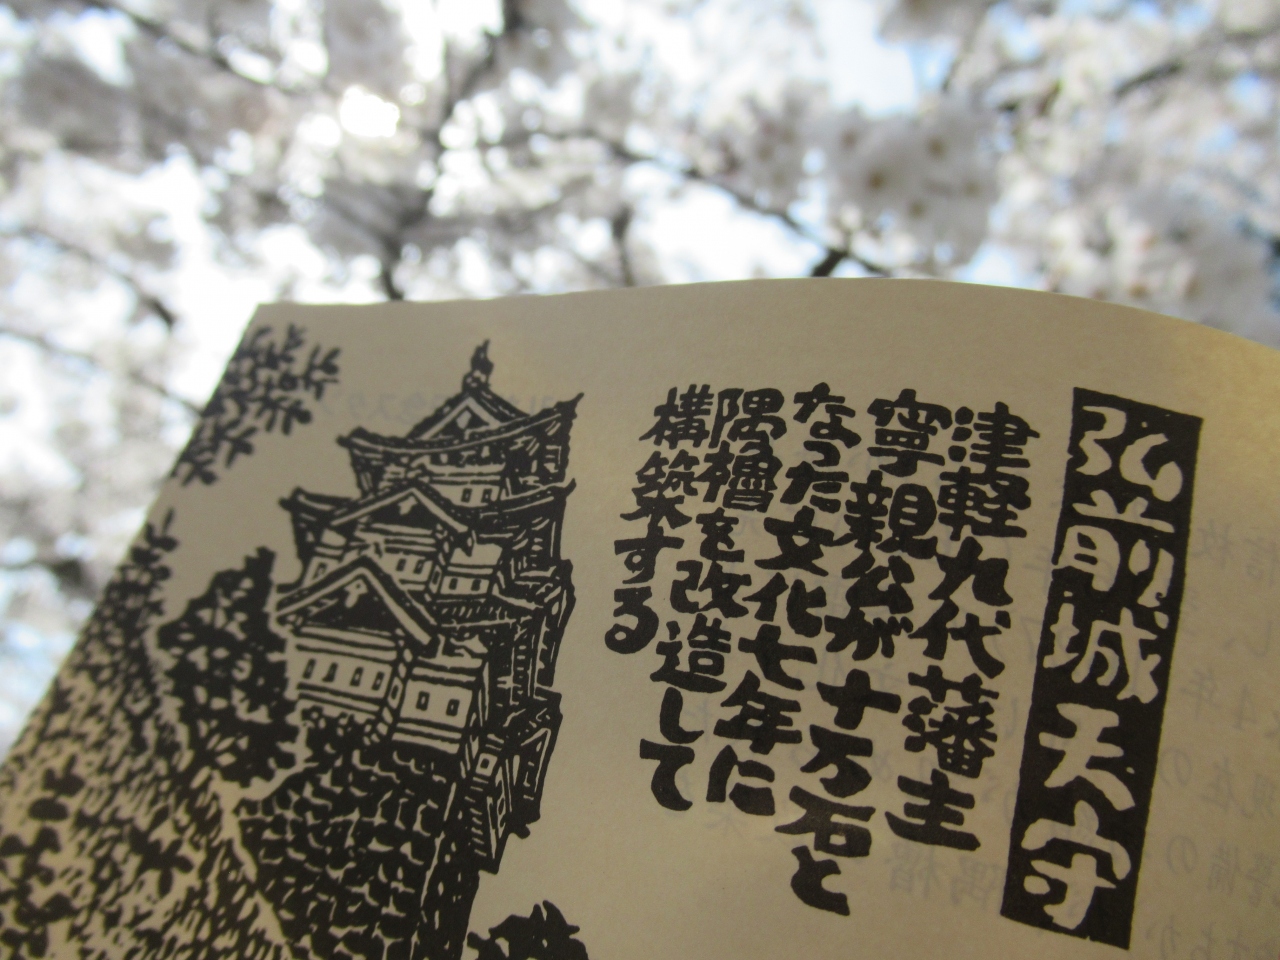 弘前城天守
津軽九代藩主
寧親公が十万石と
なった文化七年に
隅櫓を改造して
構築する